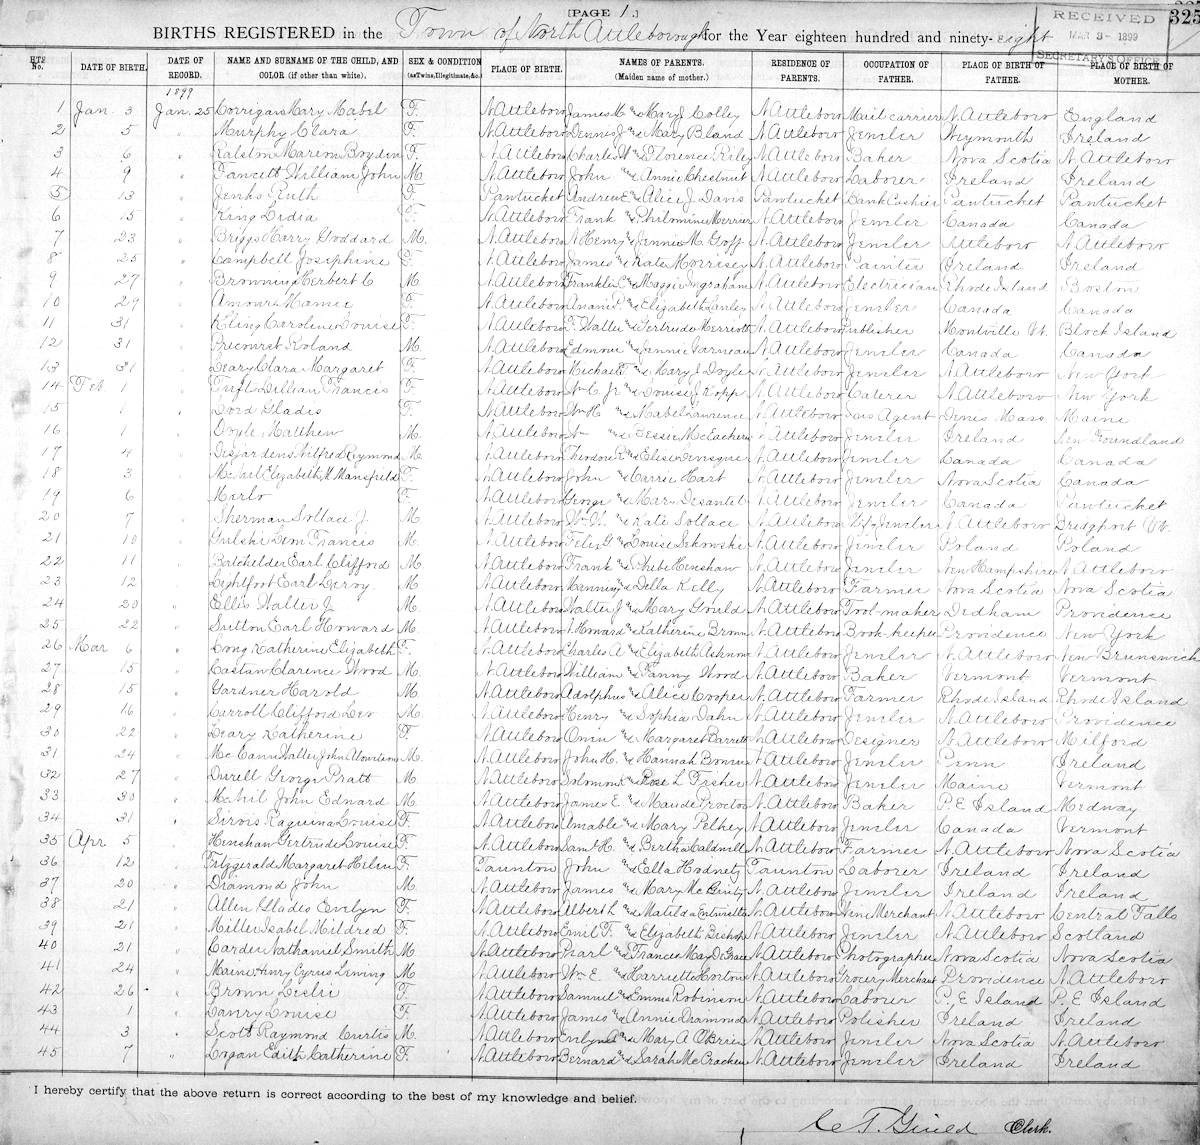 [PAGE 1.] 325
BIRTHS REGISTERED in the Town of North Attleborough for the Year eighteen hundred and ninety-eight
RECEIVED MAR 3- 1899 SECRETARY'S OFFICE
No. DATE OF BIRTH. DATE OF RECORD. NAME AND SURNAME OF THE CHILD, AND COLOR (if other than white). SEX & CONDITION (as Twins, Illegitimate, &c.) PLACE OF BIRTH. NAMES OF PARENTS. (Maiden name of mother.) RESIDENCE OF PARENTS. OCCUPATION OF FATHER. PLACE OF BIRTH OF FATHER. PLACE OF BIRTH OF MOTHER.
1899
1 Jan. 3 Jan. 25 Corrigan Mary Mabel F. N. Attleboro James M & Mary J Colley N. Attleboro Mail carrier N. Attleboro England
2 5 " Murphy Clara F. N. Attleboro Dennis J & Mary Bland N. Attleboro Jewler Weymouth Ireland
3 6 " Ralston Marion Boyden F. N. Attleboro Charles W & Florence Riley N. Attleboro Baker Nova Scotia N. Attleboro
4 9 " Fancett William John M N. Attleboro John & Annie Chestnut N. Attleboro Laborer Ireland Ireland
5 13 " Jenks Ruth F Pawtucket Andrew E & Alice J. Davis Pawtucket Bank Cashier Pawtucket Pawtucket
6 15 " King Lidia F. N. Attleboro Frank & Philomine N. Attleboro Jewler Canada Canada
7 23 " Briggs Harry Goddard M. N. Attleboro N Henry & Jennie M. Goff N. Attleboro Jewler Attleboro N. Attleboro
8 25 " Campbell Josephine F. N. Attleboro James & Kate Morrisey N. Attleboro Painter Ireland Ireland
9 27 " Browning Herbert C M. N. Attleboro Franklin C. & Maggie Ingraham N. Attleboro Electrician Rhode Island Boston
10 29 " Mamie F. N. Attleboro & Elizabeth N. Attleboro Jewler Canada Canada
11 31 " Kling Caroline Louise F. N. Attleboro F. Walter & Gertrude N. Attleboro Publisher Montville Vt. Block Island
12 31 " Precourt Roland M. N. Attleboro & Jennie N. Attleboro Jewler Canada Canada
13 31 " Leary Clara Margaret F. N. Attleboro Michael T & Mary E Doyle N. Attleboro Jewler N. Attleboro New York
14 Feb 1 " Tifft Lillian Francis F. N. Attleboro Wm C. Jr & Louise J. Kopp N. Attleboro Caterer N. Attleboro New York
15 1 " Lord Gladis F. N. Attleboro Wm H & Mabel Lawrence N. Attleboro Agent Mass Maine
16 1 " Doyle Matthew M. N. Attleboro & Bessie McEachern N. Attleboro Jewler Ireland New Foundland
17 4 " Desjardens Wilfred Raymond M. N. Attleboro Theodore R & N. Attleboro Jewler Canada Canada
18 3 " McNeil Elizabeth M Mansfield F. N. Attleboro John & Carrie Hart N. Attleboro Jewler Nova Scotia Canada
19 6 " Merlo F. N. Attleboro George & Mary Desantel N. Attleboro Jewler Canada Pawtucket
20 7 " Sherman Sollace J. M. N. Attleboro Wm W. & Kate Sollace N. Attleboro Mfg Jewler N. Attleboro Bridgport Vt.
21 10 " Francis M. N. Attleboro & Louise N. Attleboro Jewler Poland Poland
22 11 " Batchelder Earl Clifford M N. Attleboro Frank & Phebe Henshaw N. Attleboro Jewler New Hampshire N. Attleboro
23 12 " Lightfoot Earl Leroy M. N. Attleboro Manning & Della Kelly N. Attleboro Farmer Nova Scotia Nova Scotia
24 20 " Ellis Walter J. M. N. Attleboro Walter J & Mary Gould N. Attleboro Tool-maker Dedham Providence
25 22 " Sutton Earl Howard M. N. Attleboro N. Howard & Katherine Brown N. Attleboro Book-keeper Providence New York
26 Mar 6 " Long Katherine Elizabeth F. N. Attleboro Charles A & Elizabeth N. Attleboro Jewler N. Attleboro New Brunswick
27 15 " Eastan Clarence Wood M. N. Attleboro William & Fanny Wood N. Attleboro Baker Vermont Vermont
28 15 " Gardner Harold M. N. Attleboro Adolphus & Alice Cooper N. Attleboro Farmer Rhode Island Rhode Island
29 16 " Carroll Clifford Leo M. N. Attleboro Henry & Sophia Dahn N. Attleboro Jewler N. Attleboro Providence
30 22 " Leary Katherine F. N. Attleboro Owen & Margaret Barrett N. Attleboro Designer N. Attleboro Milford
31 24 " McCann Walter John M. N. Attleboro John H. & Hannah N. Attleboro Jewler Penn Ireland
32 27 " Durell George Pratt M. N. Attleboro Solomon & Rose L Fisher N. Attleboro Jewler Maine Vermont
33 30 " McNeil John Edward M. N. Attleboro James E. & Maude Proctor N. Attleboro Baker P. E Island Medway
34 31 " Sirois Louise F. N. Attleboro Amable & Mary Peltier N. Attleboro Jewler Canada Vermont
35 Apr 5 " Henshaw Gertrude Louise F. N. Attleboro Saml H. & Bertha Caldwell N. Attleboro Farmer N. Attleboro Nova Scotia
36 12 " Fitzgerald Margaret Helen F. Taunton John & Ella Hodnety Taunton Laborer Ireland Ireland
37 20 " Diamond John M. N. Attleboro James & Mary McGinty N. Attleboro Jewler Ireland Ireland
38 21 " Allen Glades Evelyn F. N. Attleboro Albert L & Matilda Entwistle N. Attleboro Wine Merchant N. Attleboro Central Falls
39 21 " Miller Isabel Mildred F. N. Attleboro Emil F. & Elizabeth Bishop N. Attleboro Jewler N. Attleboro Scotland
40 21 " Carder Nathaniel Smith M. N. Attleboro Pearl & Frances May N. Attleboro Photographer Nova Scotia Nova Scotia
41 24 " Cyrus Irving M N. Attleboro Wm E. & Harriette Horton N. Attleboro Grocery Merchant Providence N. Attleboro
42 26 " Brown Leslie F. N. Attleboro Samuel & Emma Robinson N. Attleboro Laborer P. E Island P. E Island
43 1 " Louise F. N. Attleboro James & Annie Diamond N. Attleboro Polisher Ireland Ireland
44 3 " Scott Raymond Curtis M. N. Attleboro & Mary A O'Brien N. Attleboro Jewler Nova Scotia N. Attleboro
45 7 " Logan Edith Catherine F. N. Attleboro Bernard & Sarah McCracken N. Attleboro Jewler Ireland Ireland
I hereby certify that the above return is correct according to the best of my knowledge and belief.
C T. Guild Clerk.